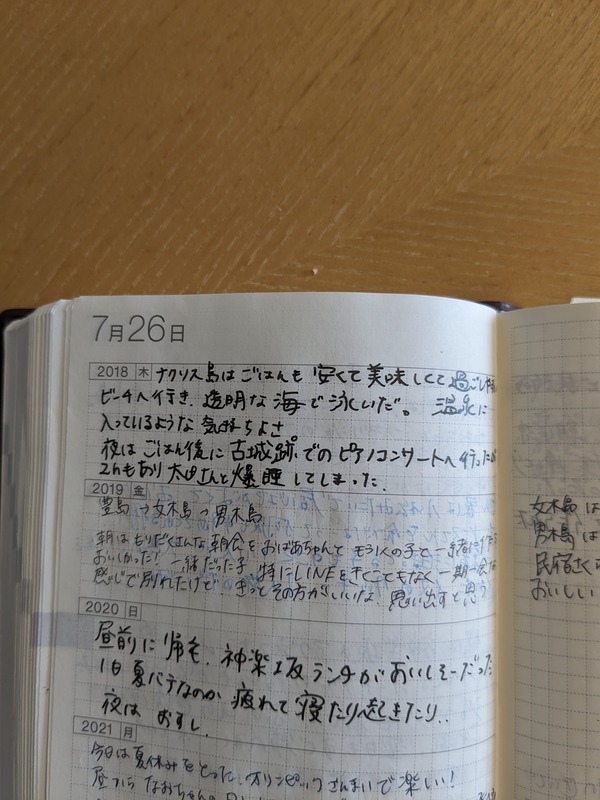 7月26日
2018 木 ナクソス島はごはんも安くて美味しくて過ごしやす
ビーチへ行き、透明な海で泳いだ。温泉に
入っているような気持ちよさ
夜はごはん後に古城跡でのピアノコンサートへ行ったが
2hもあり太田さんと爆睡してしまった.
2019 金
豊島→女木島→男木島
朝はもりだくさんな朝食をおばあちゃんともう1人の子と一緒に
おいしかった! 一緒だった子、特にLINEをきくこともなく一期一会な
感じで別れたけど きっとその方がいいな、思い出すと思う
2020 日
昼前に帰宅. 神楽坂ランチがおいしそーだった
1日夏バテなのか疲れて寝たり起きたり..
夜は おすし.
2021 月
今日は夏休みをとった. オリンピックざんまいで楽しい!
昼から なおちゃんの
女木島は
男木島は
民宿さくら
おいしい